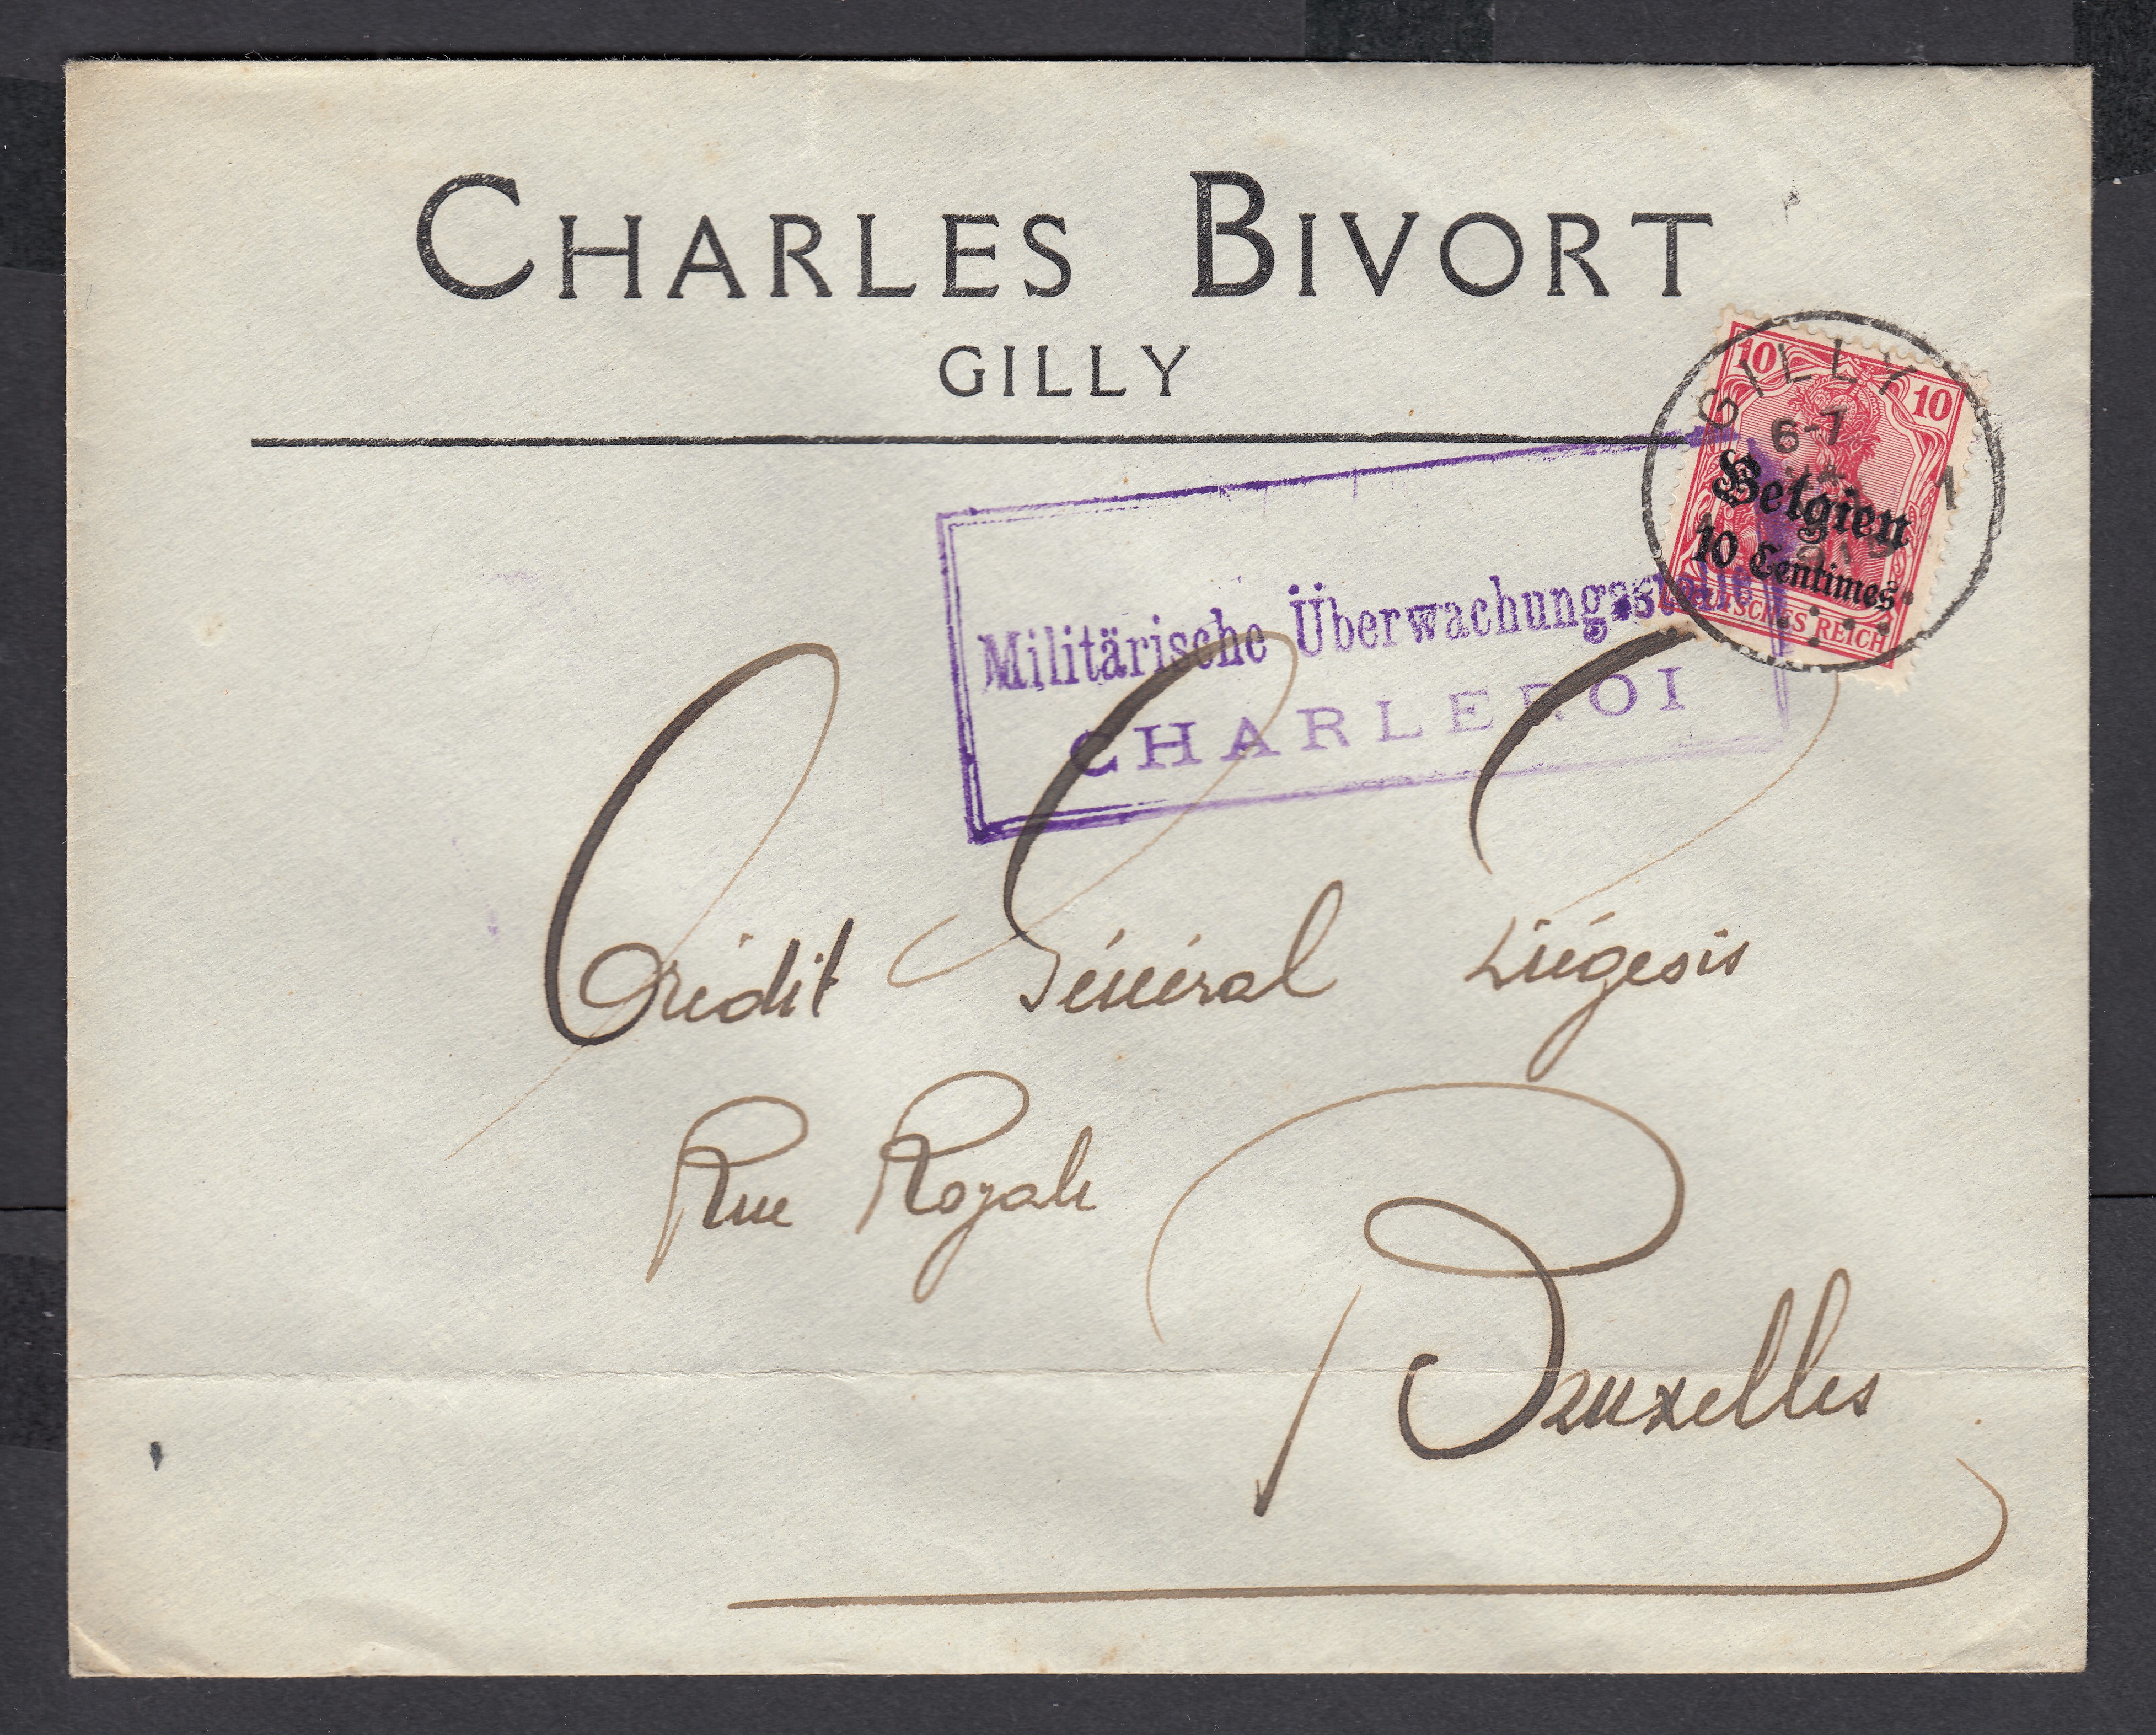 CHARLES BIVORT
GILLY
10 10
GILLY
6-7
1
Belgien
10 Centimes
DEUTSCHES REICH
Militärische Überwachungsstelle
CHARLEROI
Crédit Général Liégeois
Rue Royale
Bruxelles